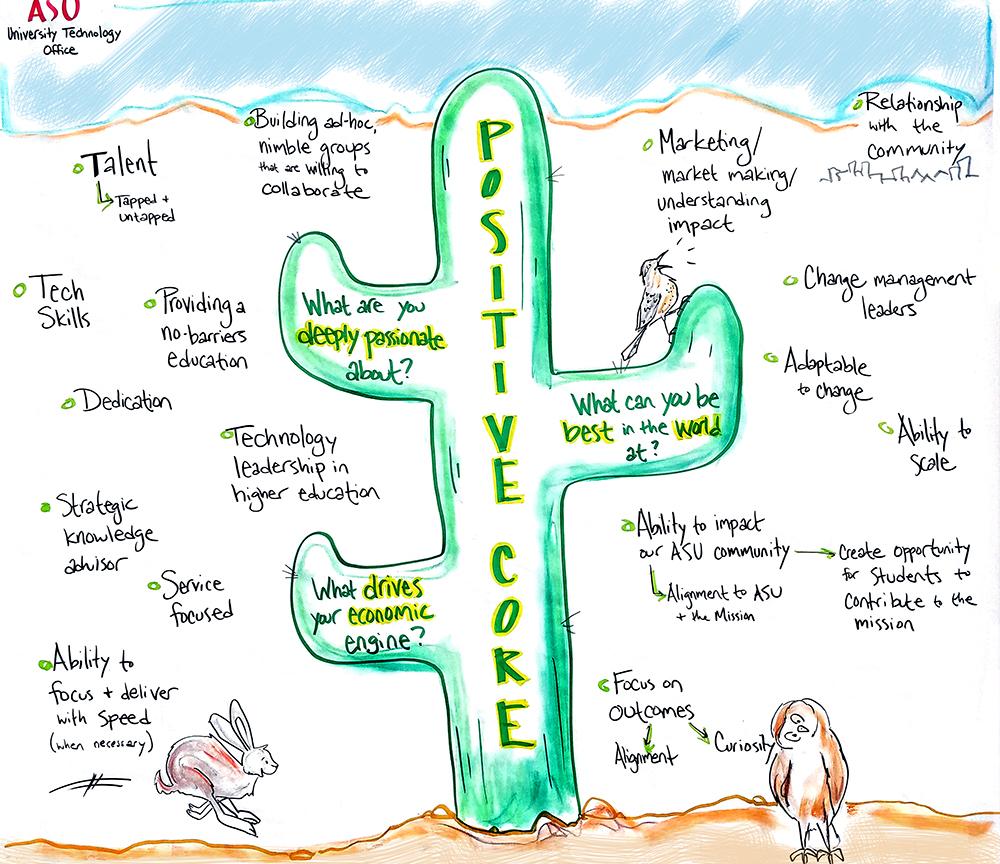 ASU
University Technology
Office
Talent
Tapped +
untapped
Building ad-hoc,
nimble groups
that are willing to
collaborate
Tech
Skills
Providing a
no-barriers
education
Dedication
Technology
leadership in
higher education
Strategic
knowledge
advisor
Service
focused
Ability to
focus + deliver
with speed
(when necessary)
POSITIVE CORE
What are you
deeply passionate
about?
What can you be
best in the world
at?
What drives
your economic
engine?
Marketing/
market making/
understanding
impact
Relationship
with the
community
Change management
leaders
Adaptable
to change
Ability to
scale
Ability to impact
our ASU community
Alignment to ASU
+ the Mission
Create opportunity
for students to
contribute to the
mission
Focus on
outcomes
Alignment
Curiosity